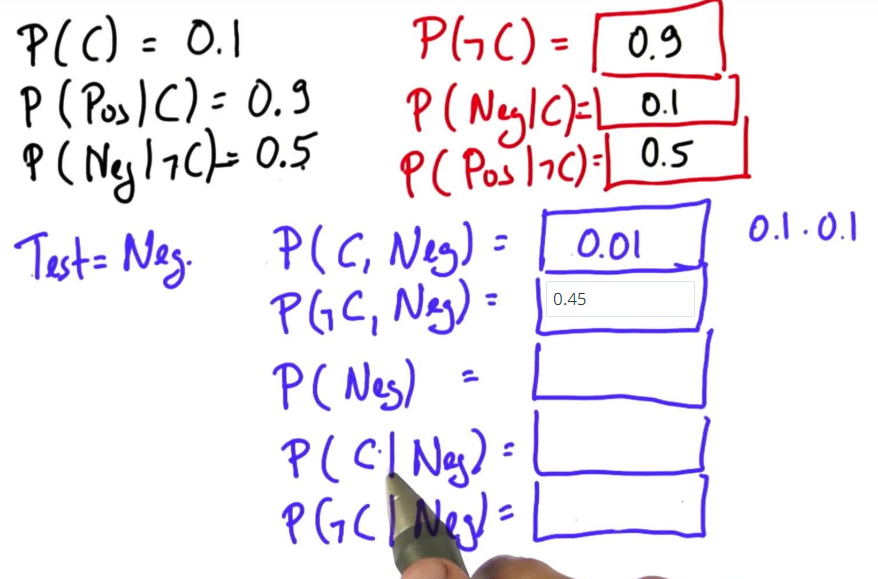 P(C) = 0.1
P(¬C) = 0.9
P(Pos|C) = 0.9
P(Neg|C) = 0.1
P(Neg|¬C) = 0.5
P(Pos|¬C) = 0.5
Test = Neg.
P(C, Neg) = 0.01 0.1 · 0.1
P(¬C, Neg) = 0.45
P(Neg) =
P(C|Neg) =
P(¬C|Neg) =